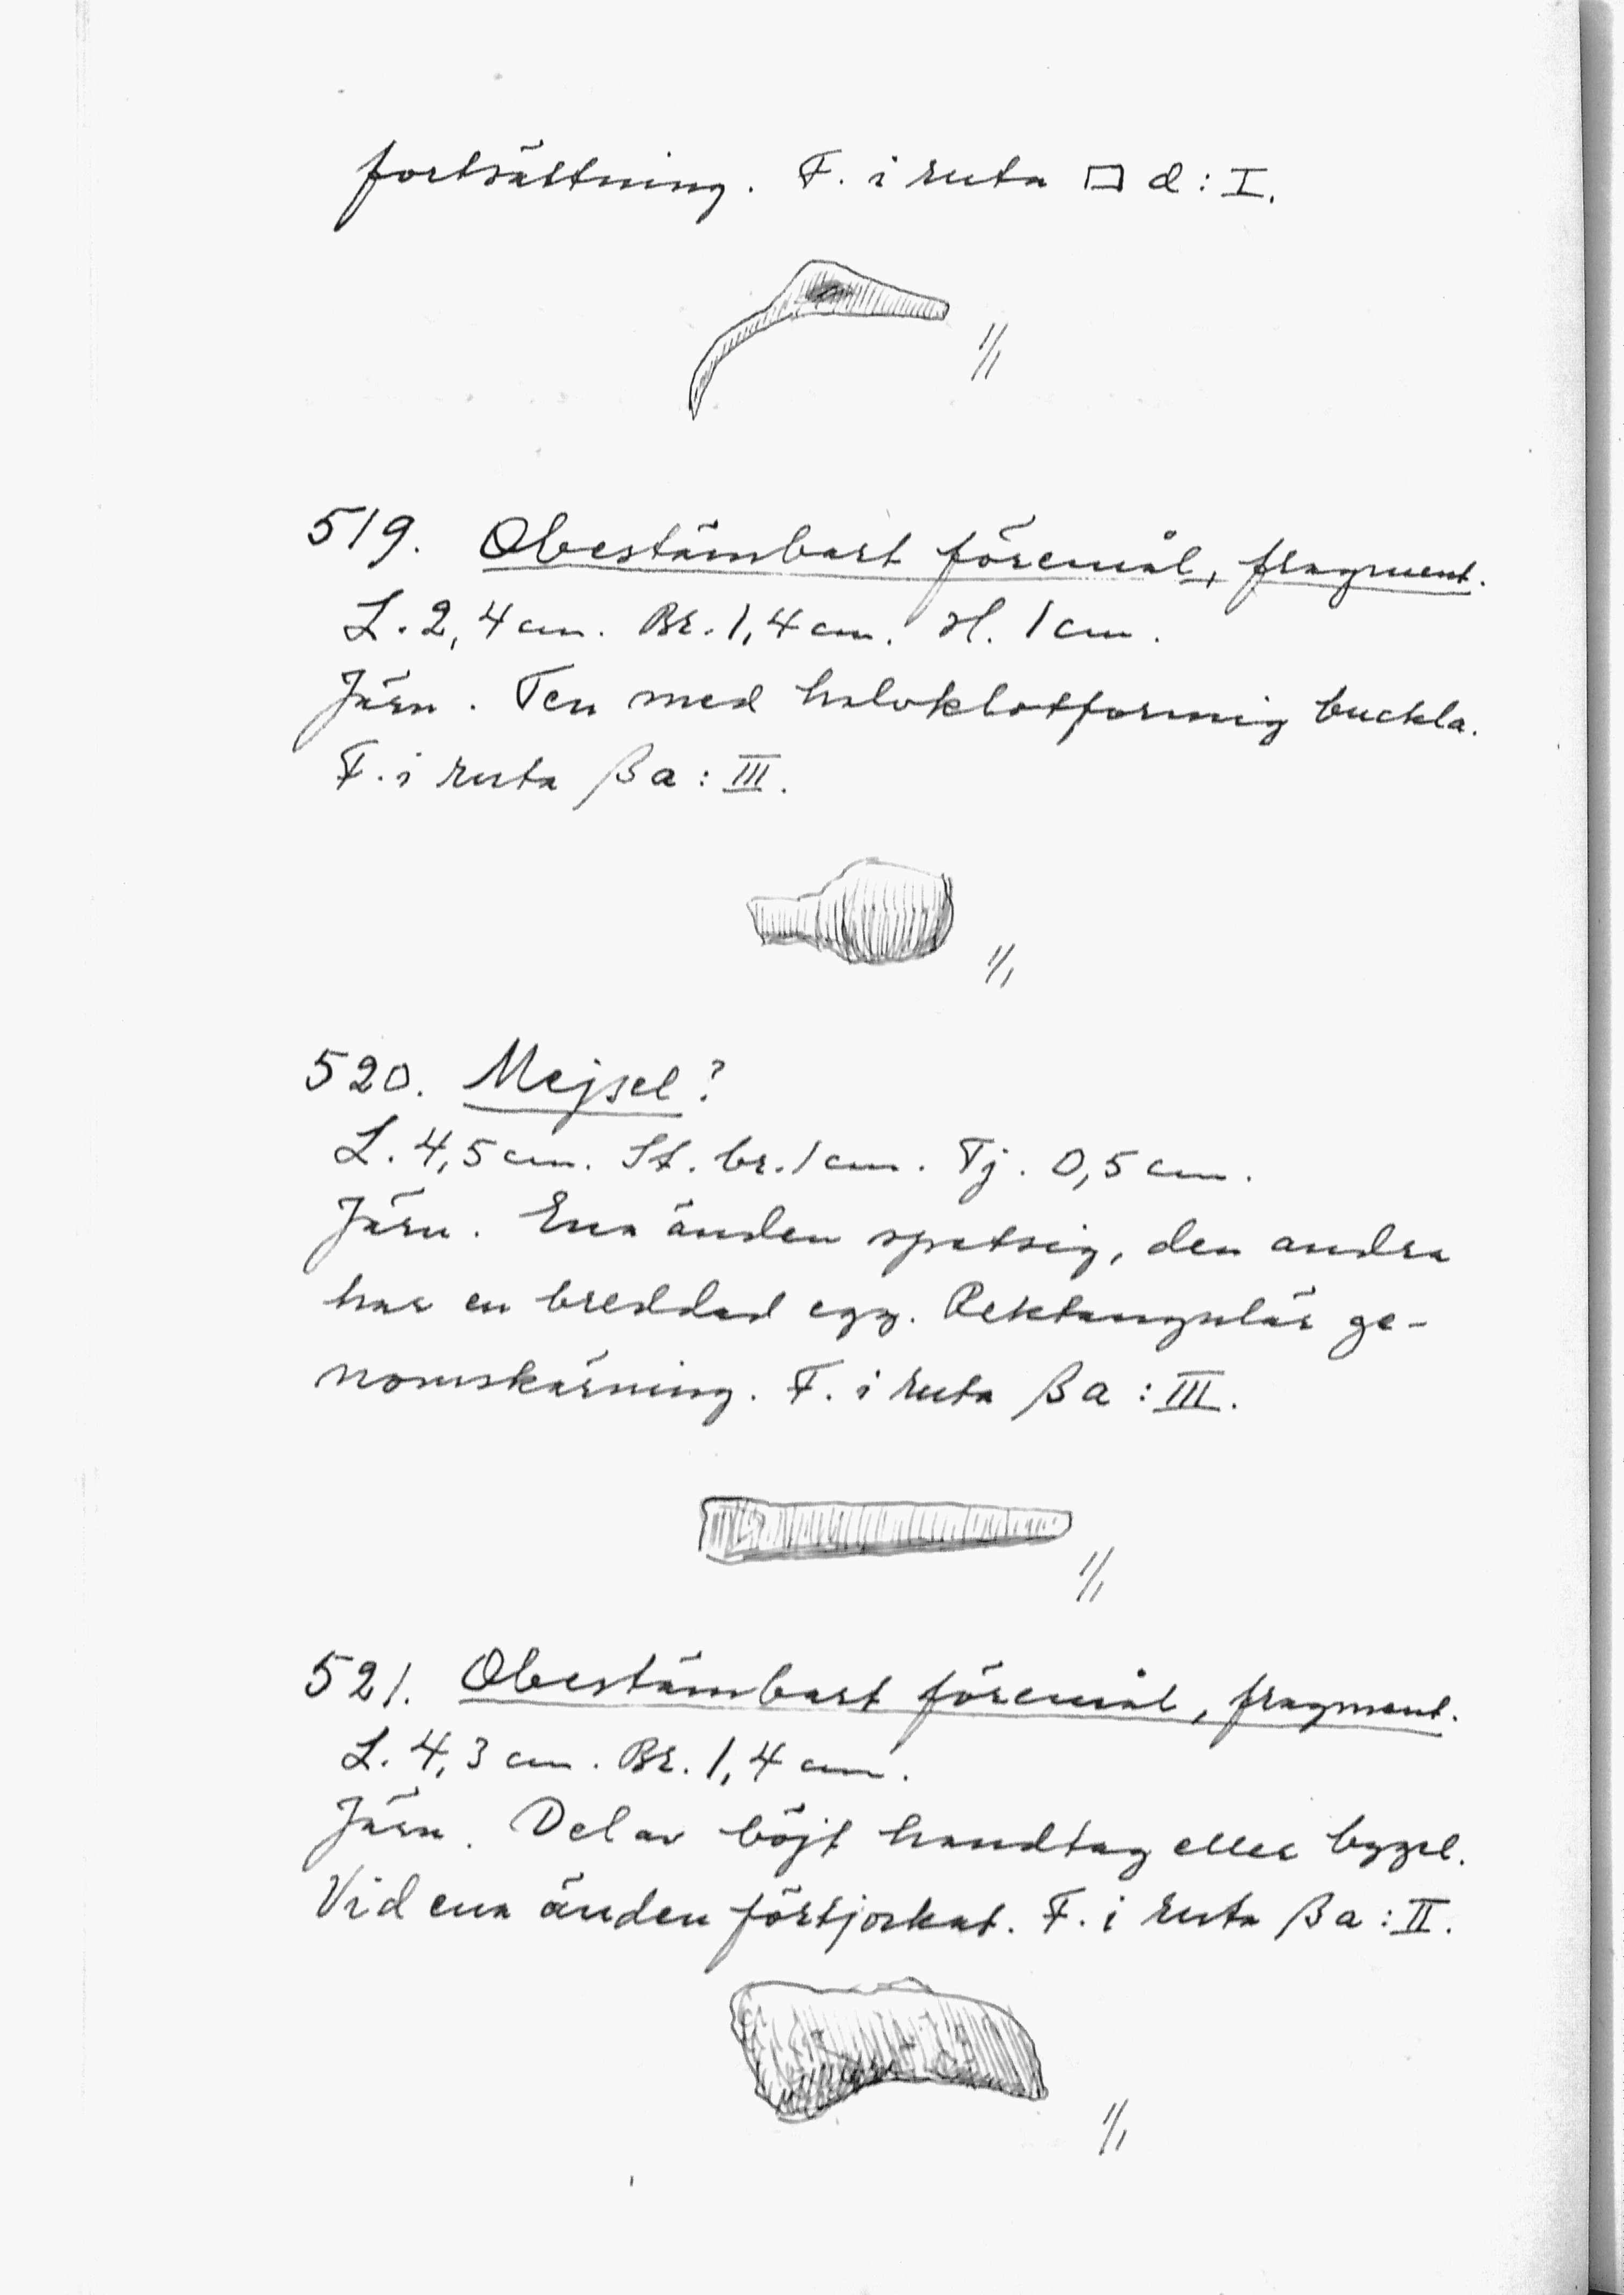 fortsättning. F. i ruta □ d : I.
1/1
519. Obestämbart föremål, fragment.
L. 2,4 cm. Br. 1,4 cm. H. 1 cm.
Järn. Ten med halvklotformig buckla.
F. i ruta β a : III.
1/1
520. Mejsel?
L. 4,5 cm. St. br. 1 cm. Tj. 0,5 cm.
Järn. Ena änden spetsig, den andra
har en breddad egg. Rektangulär ge-
nomskärning. F. i ruta β a : III.
1/1
521. Obestämbart föremål, fragment.
L. 4,3 cm. Br. 1,4 cm.
Järn. Del av böjt handtag eller bygel.
Vid ena änden förtjockat. F. i ruta β a : II.
1/1